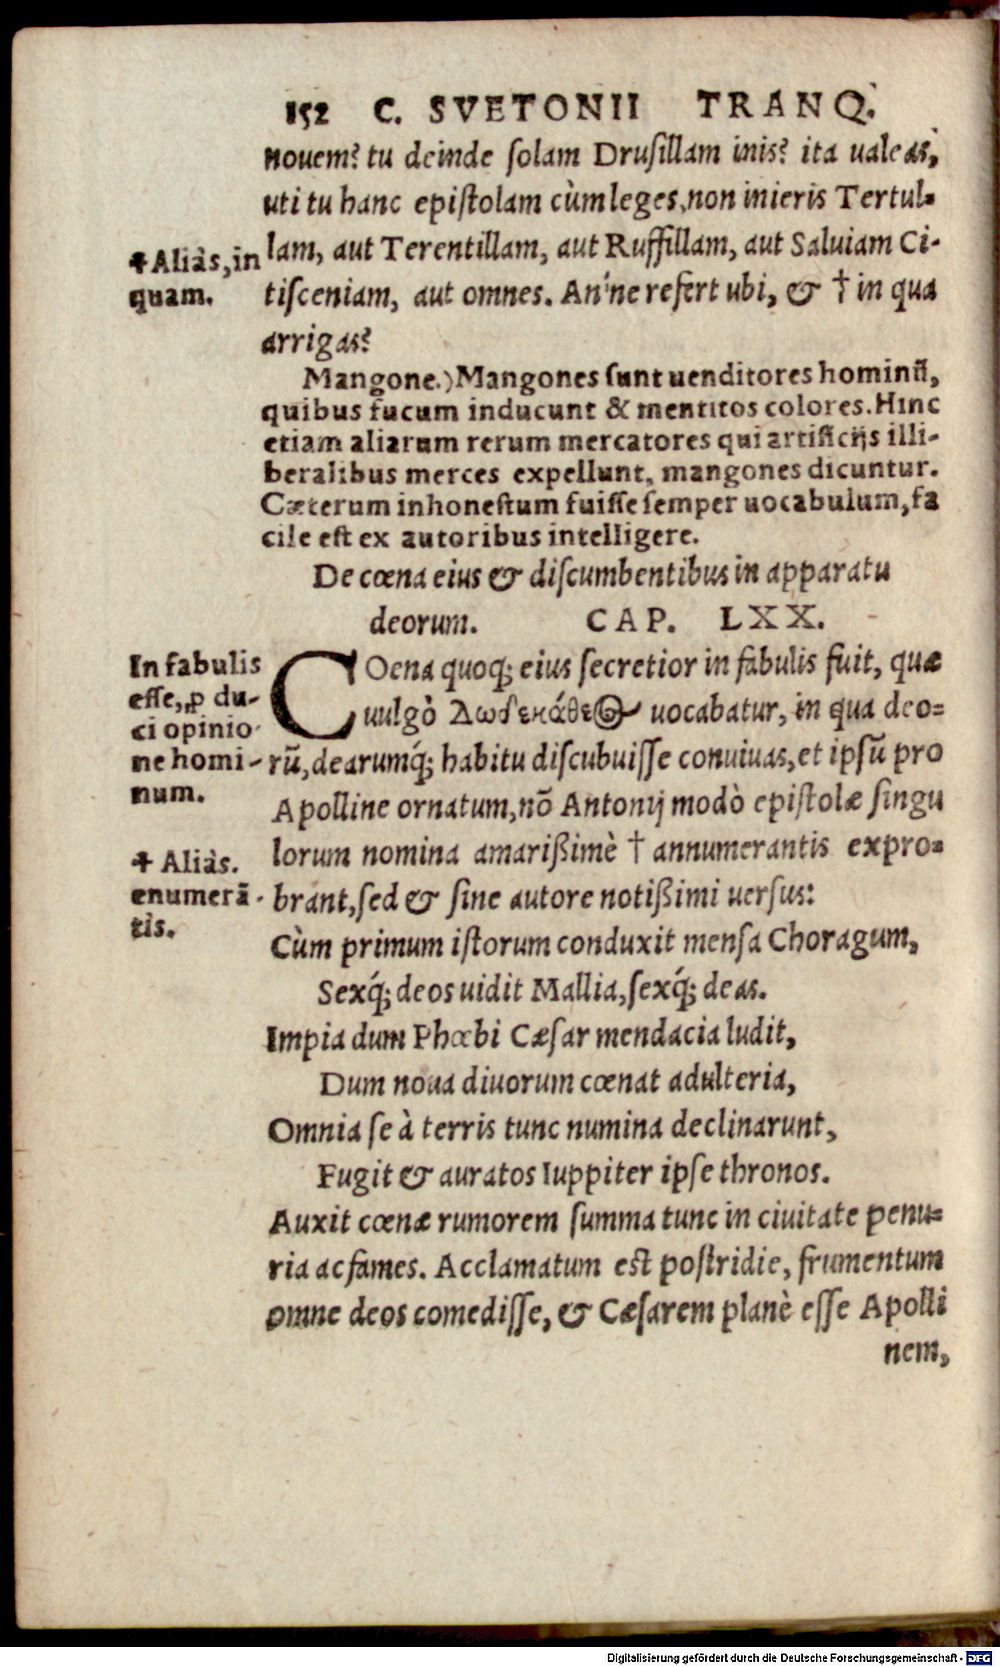 152 C. SVETONII TRANQ.
nouem? tu deinde ſolam Druſillam inis? ita ualeas,
uti tu hanc epiſtolam cùm leges, non inieris Tertul-
lam, aut Terentillam, aut Ruffillam, aut Saluiam Ci-
tiſceniam, aut omnes. An'ne refert ubi, & † in qua
arrigas?
✝ Aliàs, in
quam.
Mangone.) Mangones ſunt uenditores hominū,
quibus fucum inducunt & mentitos colores. Hinc
etiam aliarum rerum mercatores qui artificijs illi-
beralibus merces expellunt, mangones dicuntur.
Cæterum inhoneſtum fuiſſe ſemper uocabulum, fa
cile eſt ex autoribus intelligere.
De cœna eius & diſcumbentibus in apparatu
deorum. CAP. LXX.
In fabulis
eſſe, ꝓ du-
ci opinio
ne homi-
num.
COena quoq; eius ſecretior in fabulis fuit, quæ
uulgò Δωδεκάθεος uocabatur, in qua deo-
rū, dearumq́; habitu diſcubuiſſe conuiuas, et ipſū pro
Apolline ornatum, nō Antonij modò epiſtolæ ſingu
lorum nomina amarißimè † annumerantis expro-
brant, ſed & ſine autore notißimi uerſus:
✝ Aliàs.
enumerā
tis.
Cùm primum iſtorum conduxit menſa Choragum,
Sexq́; deos uidit Mallia, ſexq́; deas.
Impia dum Phœbi Cæſar mendacia ludit,
Dum noua diuorum cœnat adulteria,
Omnia ſe à terris tunc numina declinarunt,
Fugit & auratos Iuppiter ipſe thronos.
Auxit cœnæ rumorem ſumma tunc in ciuitate penu-
ria ac fames. Acclamatum eſt poſtridie, frumentum
omne deos comediſſe, & Cæſarem planè eſſe Apolli
nem,
Digitalisierung gefördert durch die Deutsche Forschungsgemeinschaft - DFG